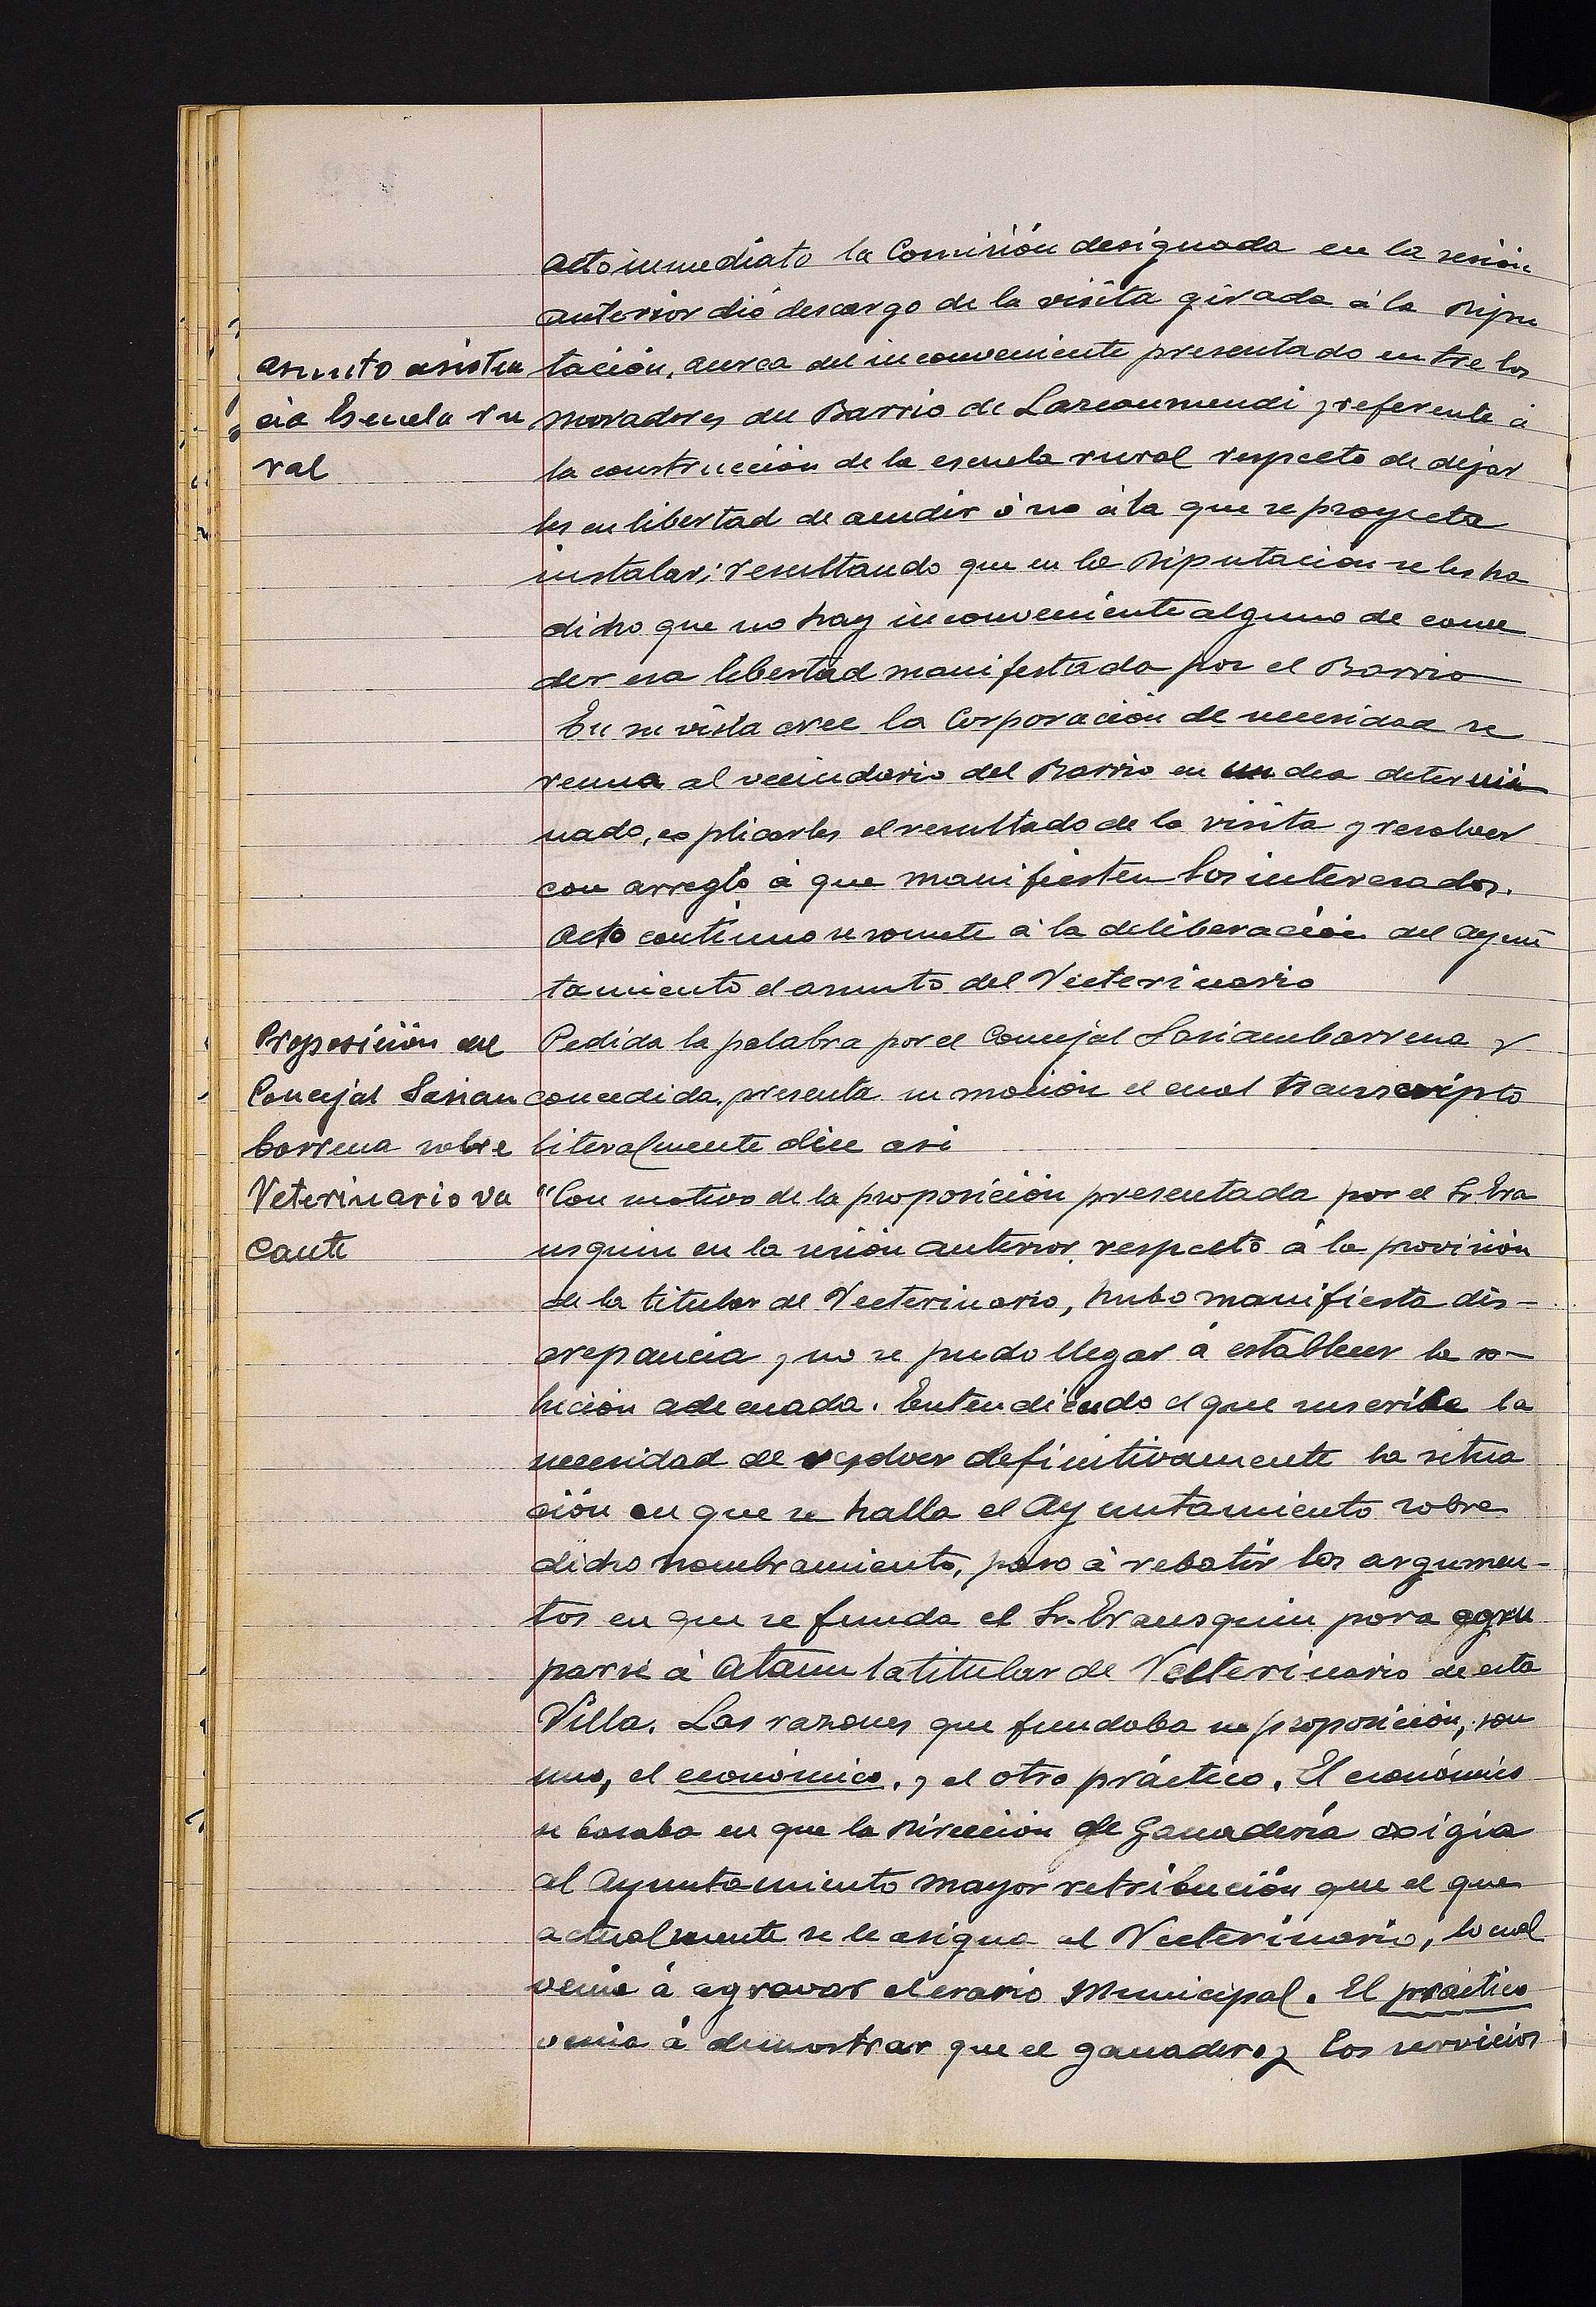 acto inmediato la Comisión designada en la sesión
anterior dió descargo de la visita girada á la Dipu
asunto asisten
cia Escuela ru
ral
tación, acerca del inconveniente presentado entre los
moradores del Barrio de Lazcaumendi, referente á
la construcción de la escuela rural respecto de dejar
les en libertad de acudir ó no á la que se proyecta
instalar; resultando que en la Diputación se les ha
dicho que no hay inconveniente alguno de conce
der esa libertad manifestada por el Barrio
En su vista cree la Corporación de necesidad se
reuna al vecindario del Barrio en un dia determi
nado, explicarles el resultado de la visita y resolver
con arreglo á que manifiesten los interesados.
Acto continuo se somete á la deliberación del Ayun
tamiento el asunto del Vecterinario
Proposición del
Concejal Sasiam
barrena sobre
Veterinario va
cante
Pedida la palabra por el Concejal Sasiambarrena y
concedida, presenta su moción el cual transcripto
literalmente dice asi
"Con motivo de la proposición presentada por el Sr. Era
usquin en la sesión anterior, respecto á la provisión
de la titular de Vecterinario, hubo manifiesta dis-
crepancia y no se pudo llegar á establecer la so-
lución adecuada. Entendiendo el que suscribe la
necesidad de resolver definitivamente la situa
ción en que se halla el Ayuntamiento sobre
dicho nombramiento, paso á rebatir los argumen-
tos en que se funda el Sr. Erausquin para agru
parse á Ataun la titular de Vecterinario de esta
Villa. Las razones que fundaba su proposición, son
uno, el económico, y el otro práctico. El económico
se basaba en que la Dirección de Ganadería exigia
al Ayuntamiento mayor retribución que el que
actualmente se le asigna al Vecterinario, lo cual
venia á agravar el erario Municipal. El práctico
venia á demostrar que el ganadero y los servicios